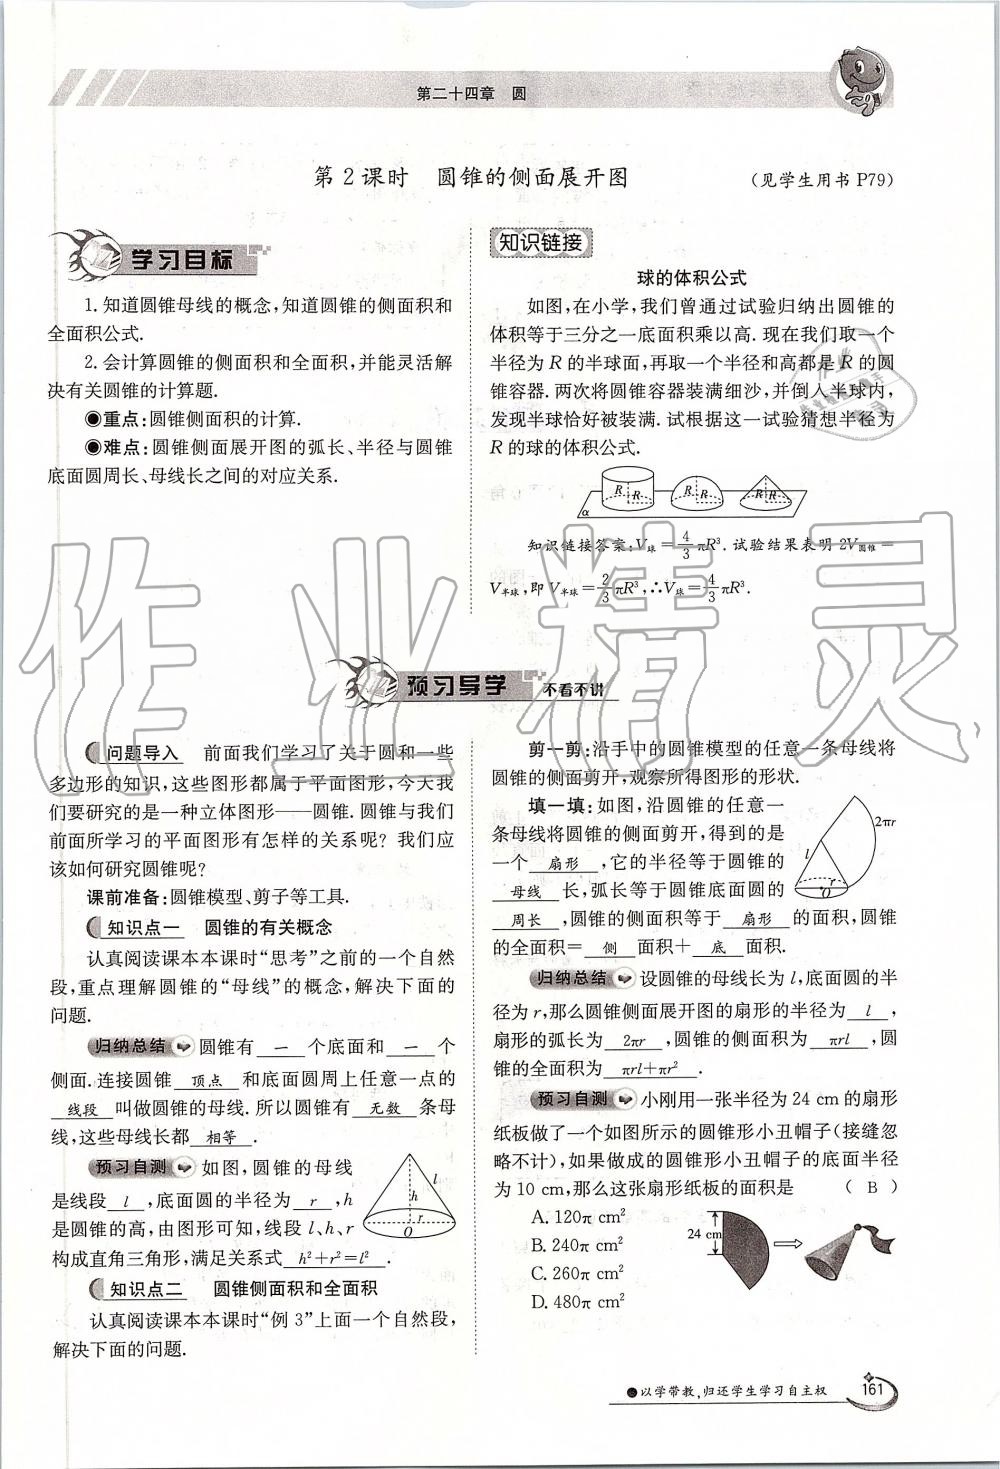 第二十四章 圆
第2课时 圆锥的侧面展开图
(见学生用书 P79)
学习目标
1. 知道圆锥母线的概念,知道圆锥的侧面积和
全面积公式.
2. 会计算圆锥的侧面积和全面积,并能灵活解
决有关圆锥的计算题.
◉重点:圆锥侧面积的计算.
◉难点:圆锥侧面展开图的弧长、半径与圆锥
底面圆周长、母线长之间的对应关系.
知识链接
球的体积公式
如图,在小学,我们曾通过试验归纳出圆锥的
体积等于三分之一底面积乘以高. 现在我们取一个
半径为 R 的半球面,再取一个半径和高都是 R 的圆
锥容器. 两次将圆锥容器装满细沙,并倒人半球内,
发现半球恰好被装满. 试根据这一试验猜想半径为
R 的球的体积公式.
R R R R R R
α
知识链接答案:V球=4/3πR³. 试验结果表明 2V圆锥=
V半球,即 V半球=2/3πR³,∴V球=4/3πR³.
预习导学 不看不讲
问题导入 前面我们学习了关于圆和一些
多边形的知识,这些图形都属于平面图形,今天我
们要研究的是一种立体图形——圆锥. 圆锥与我们
前面所学习的平面图形有怎样的关系呢? 我们应
该如何研究圆锥呢?
课前准备:圆锥模型、剪子等工具.
知识点一 圆锥的有关概念
认真阅读课本本课时“思考”之前的一个自然
段,重点理解圆锥的“母线”的概念,解决下面的
问题.
归纳总结 圆锥有 一 个底面和 一 个
侧面. 连接圆锥 顶点 和底面圆周上任意一点的
线段 叫做圆锥的母线. 所以圆锥有 无数 条母
线,这些母线长都 相等 .
预习自测 如图,圆锥的母线
是线段 l ,底面圆的半径为 r ,h
是圆锥的高,由图形可知,线段 l、h、r
构成直角三角形,满足关系式 h²+r²=l² .
h l r O
知识点二 圆锥侧面积和全面积
认真阅读课本本课时“例 3”上面一个自然段,
解决下面的问题.
剪一剪:沿手中的圆锥模型的任意一条母线将
圆锥的侧面剪开,观察所得图形的形状.
填一填:如图,沿圆锥的任意一
条母线将圆锥的侧面剪开,得到的是
一个 扇形 ,它的半径等于圆锥的
母线 长,弧长等于圆锥底面圆的
周长 ,圆锥的侧面积等于 扇形 的面积,圆锥
的全面积= 侧 面积+ 底 面积.
2πr l r O
归纳总结 设圆锥的母线长为 l,底面圆的半
径为 r,那么圆锥侧面展开图的扇形的半径为 l ,
扇形的弧长为 2πr ,圆锥的侧面积为 πrl ,圆
锥的全面积为 πrl+πr² .
预习自测 小刚用一张半径为 24 cm 的扇形
纸板做了一个如图所示的圆锥形小丑帽子(接缝忽
略不计),如果做成的圆锥形小丑帽子的底面半径
为 10 cm,那么这张扇形纸板的面积是 ( B )
A. 120π cm²
B. 240π cm²
C. 260π cm²
D. 480π cm²
24 cm
●以学带教,归还学生学习自主权
161
作业精灵